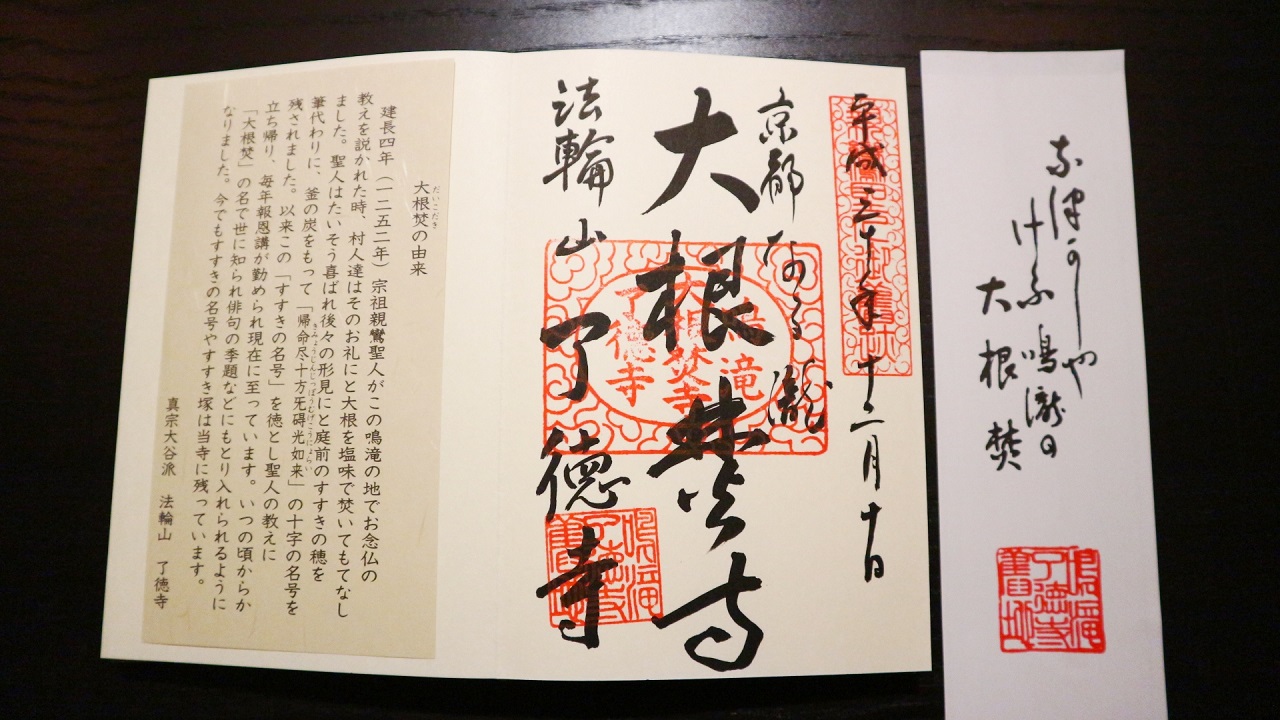 な津かしや
けふ鳴瀧の
大根焚
平成三十年十二月十日
京都なる瀧
大根焚寺
法輪山了徳寺
鳴滝
大根焚寺
了徳寺
大根焚の由来
だいこだき
建長四年（一二五二年）宗祖親鸞聖人がこの鳴滝の地でお念仏の
教えを説かれた時、村人達はそのお礼にと大根を塩味で焚いてもてなし
ました。聖人はたいそう喜ばれ後々の形見にと庭前のすすきの穂を
筆代わりに、釜の炭をもって「帰命尽十方旡碍光如来」の十字の名号を
きみょうじんじっぽうむげこうにょらい
残されました。以来この「すすきの名号」を徳とし聖人の教えに
立ち帰り、毎年報恩講が勤められ現在に至っています。いつの頃からか
「大根焚」の名で世に知られ俳句の季題などにもとり入れられるように
なりました。今でもすすきの名号やすすき塚は当寺に残っています。
真宗大谷派　法輪山　了徳寺